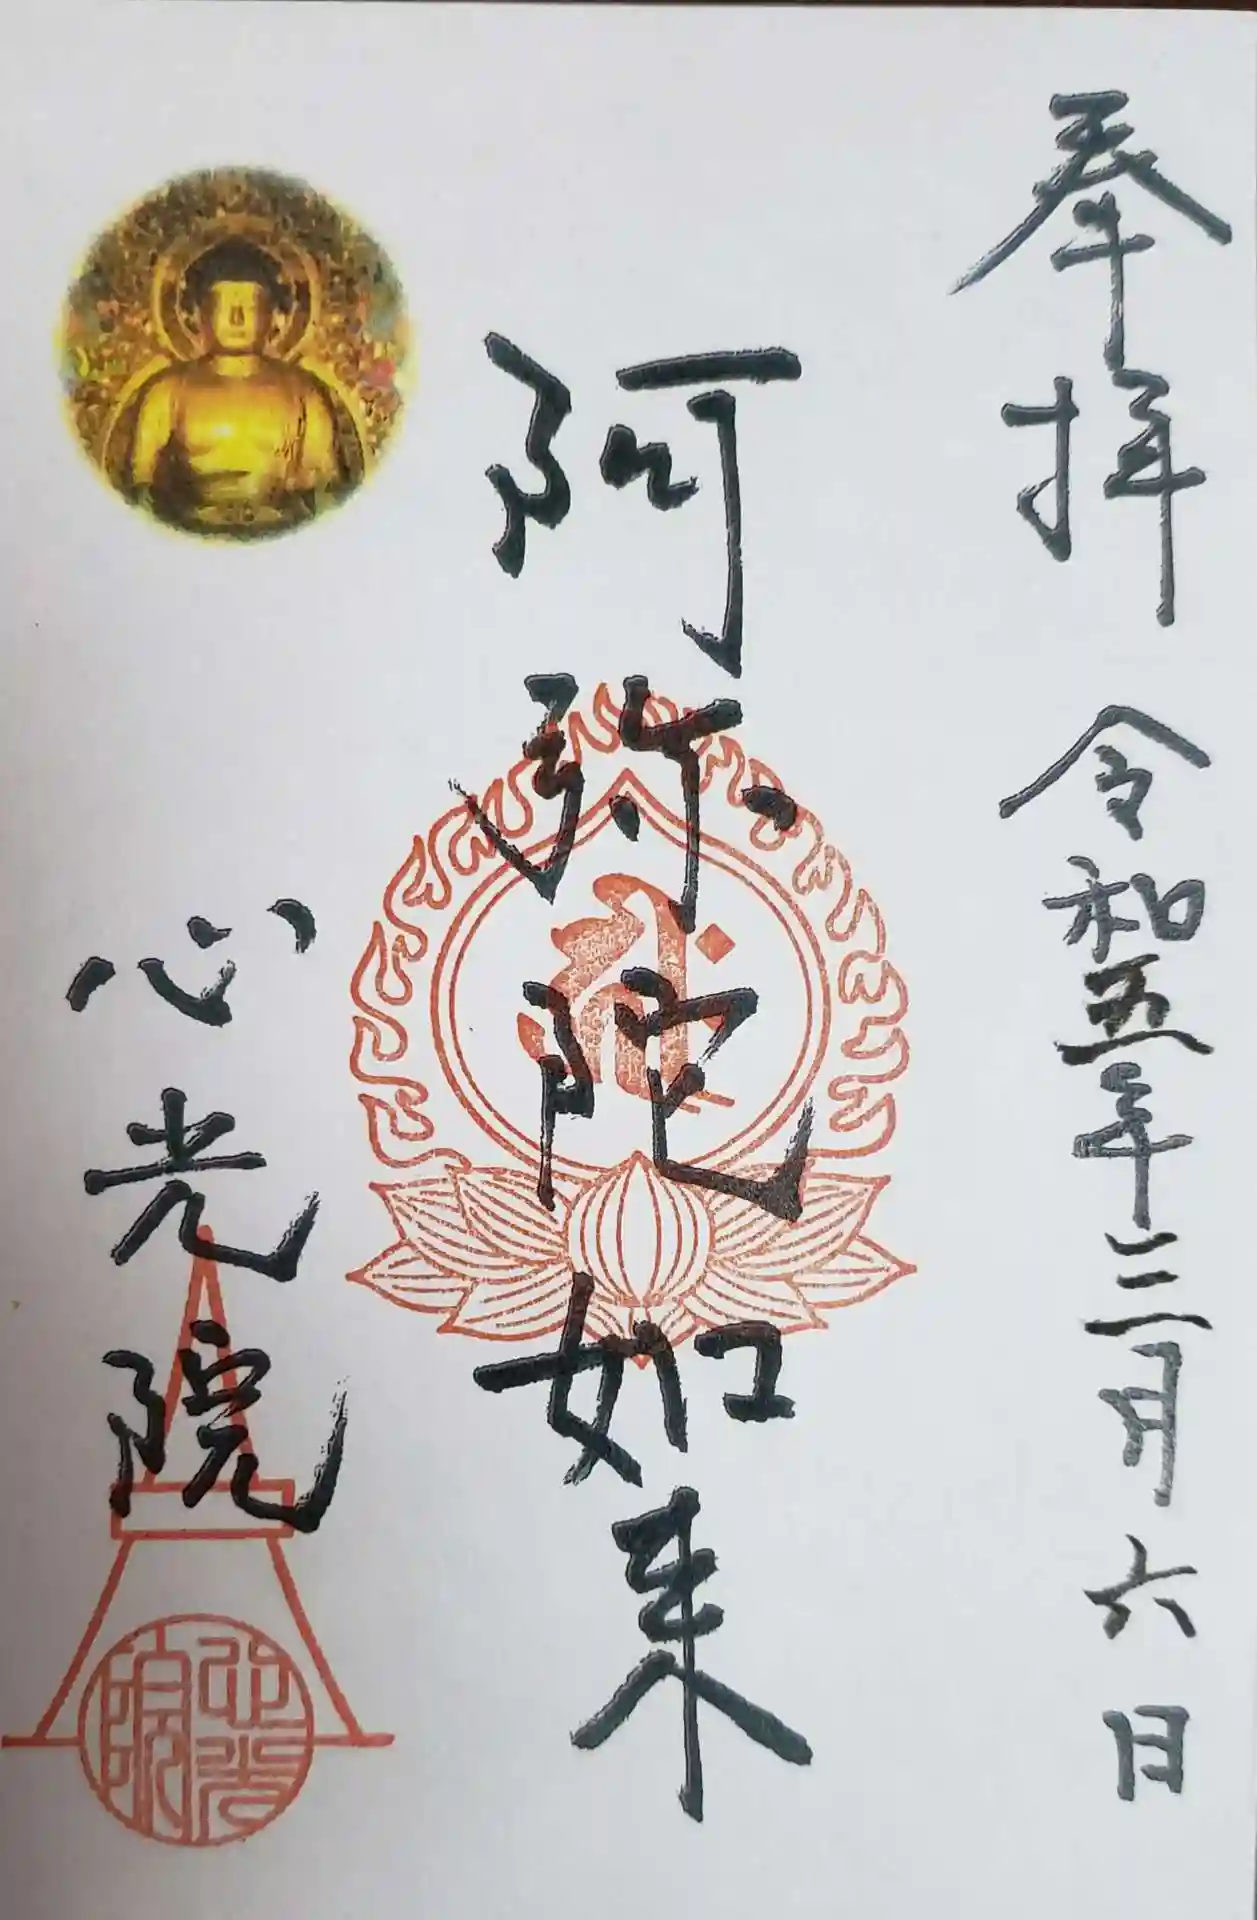 奉拝 令和五年三月六日
阿弥陀如来
心光院
心光院